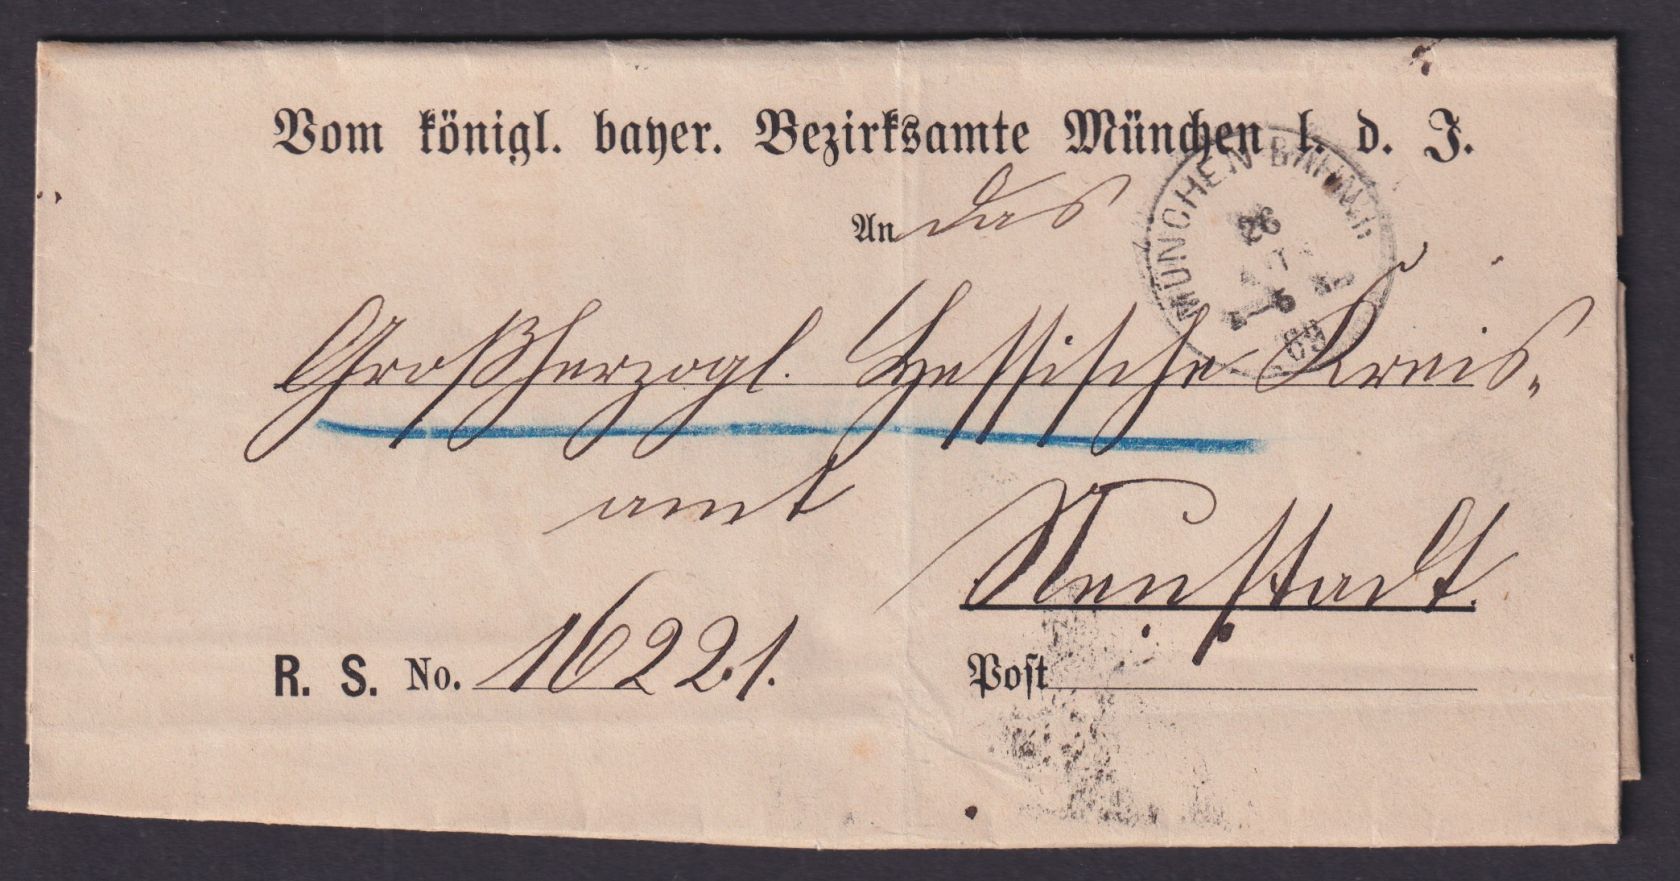 Vom königl. bayer. Bezirksamte München l. d. J.
An das
MÜNCHEN
26
5
89
Großherzogl. Hessische Kreis-
amt
Neustadt.
R. S. No. 16221.
Post